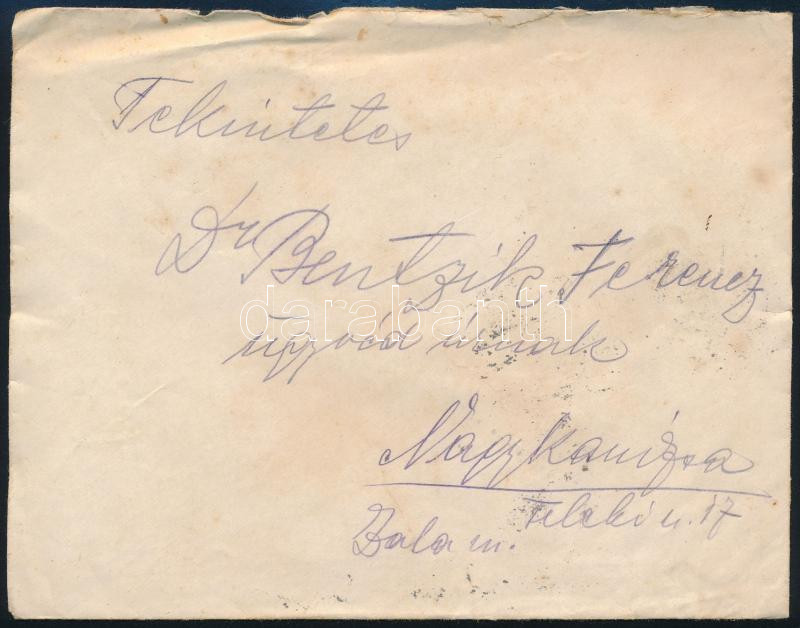 Tekintetes
Dr Bentzik Ferencz
darabanth
ügyvéd úrnak
Nagykanizsa
Teleki u. 17
Zala m.